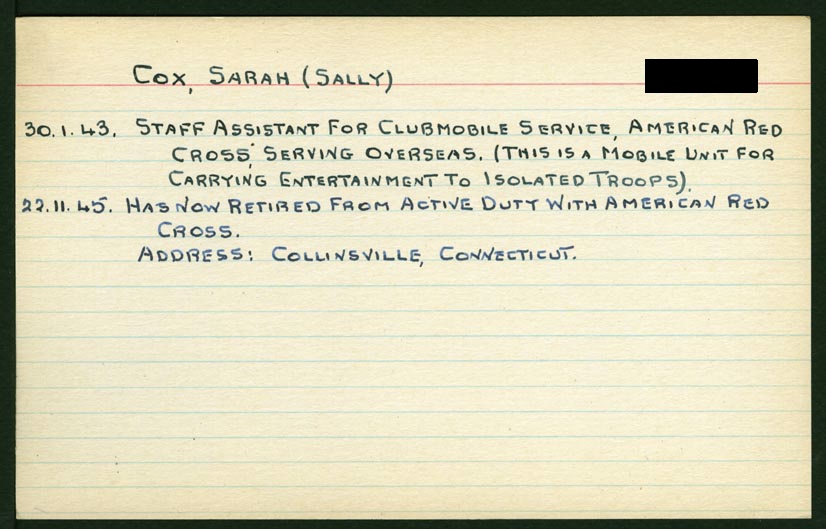 COX, SARAH (SALLY)
30.1.43. STAFF ASSISTANT FOR CLUBMOBILE SERVICE, AMERICAN RED
CROSS, SERVING OVERSEAS. (THIS IS A MOBILE UNIT FOR
CARRYING ENTERTAINMENT TO ISOLATED TROOPS).
22.11.45. HAS NOW RETIRED FROM ACTIVE DUTY WITH AMERICAN RED
CROSS.
ADDRESS: COLLINSVILLE, CONNECTICUT.